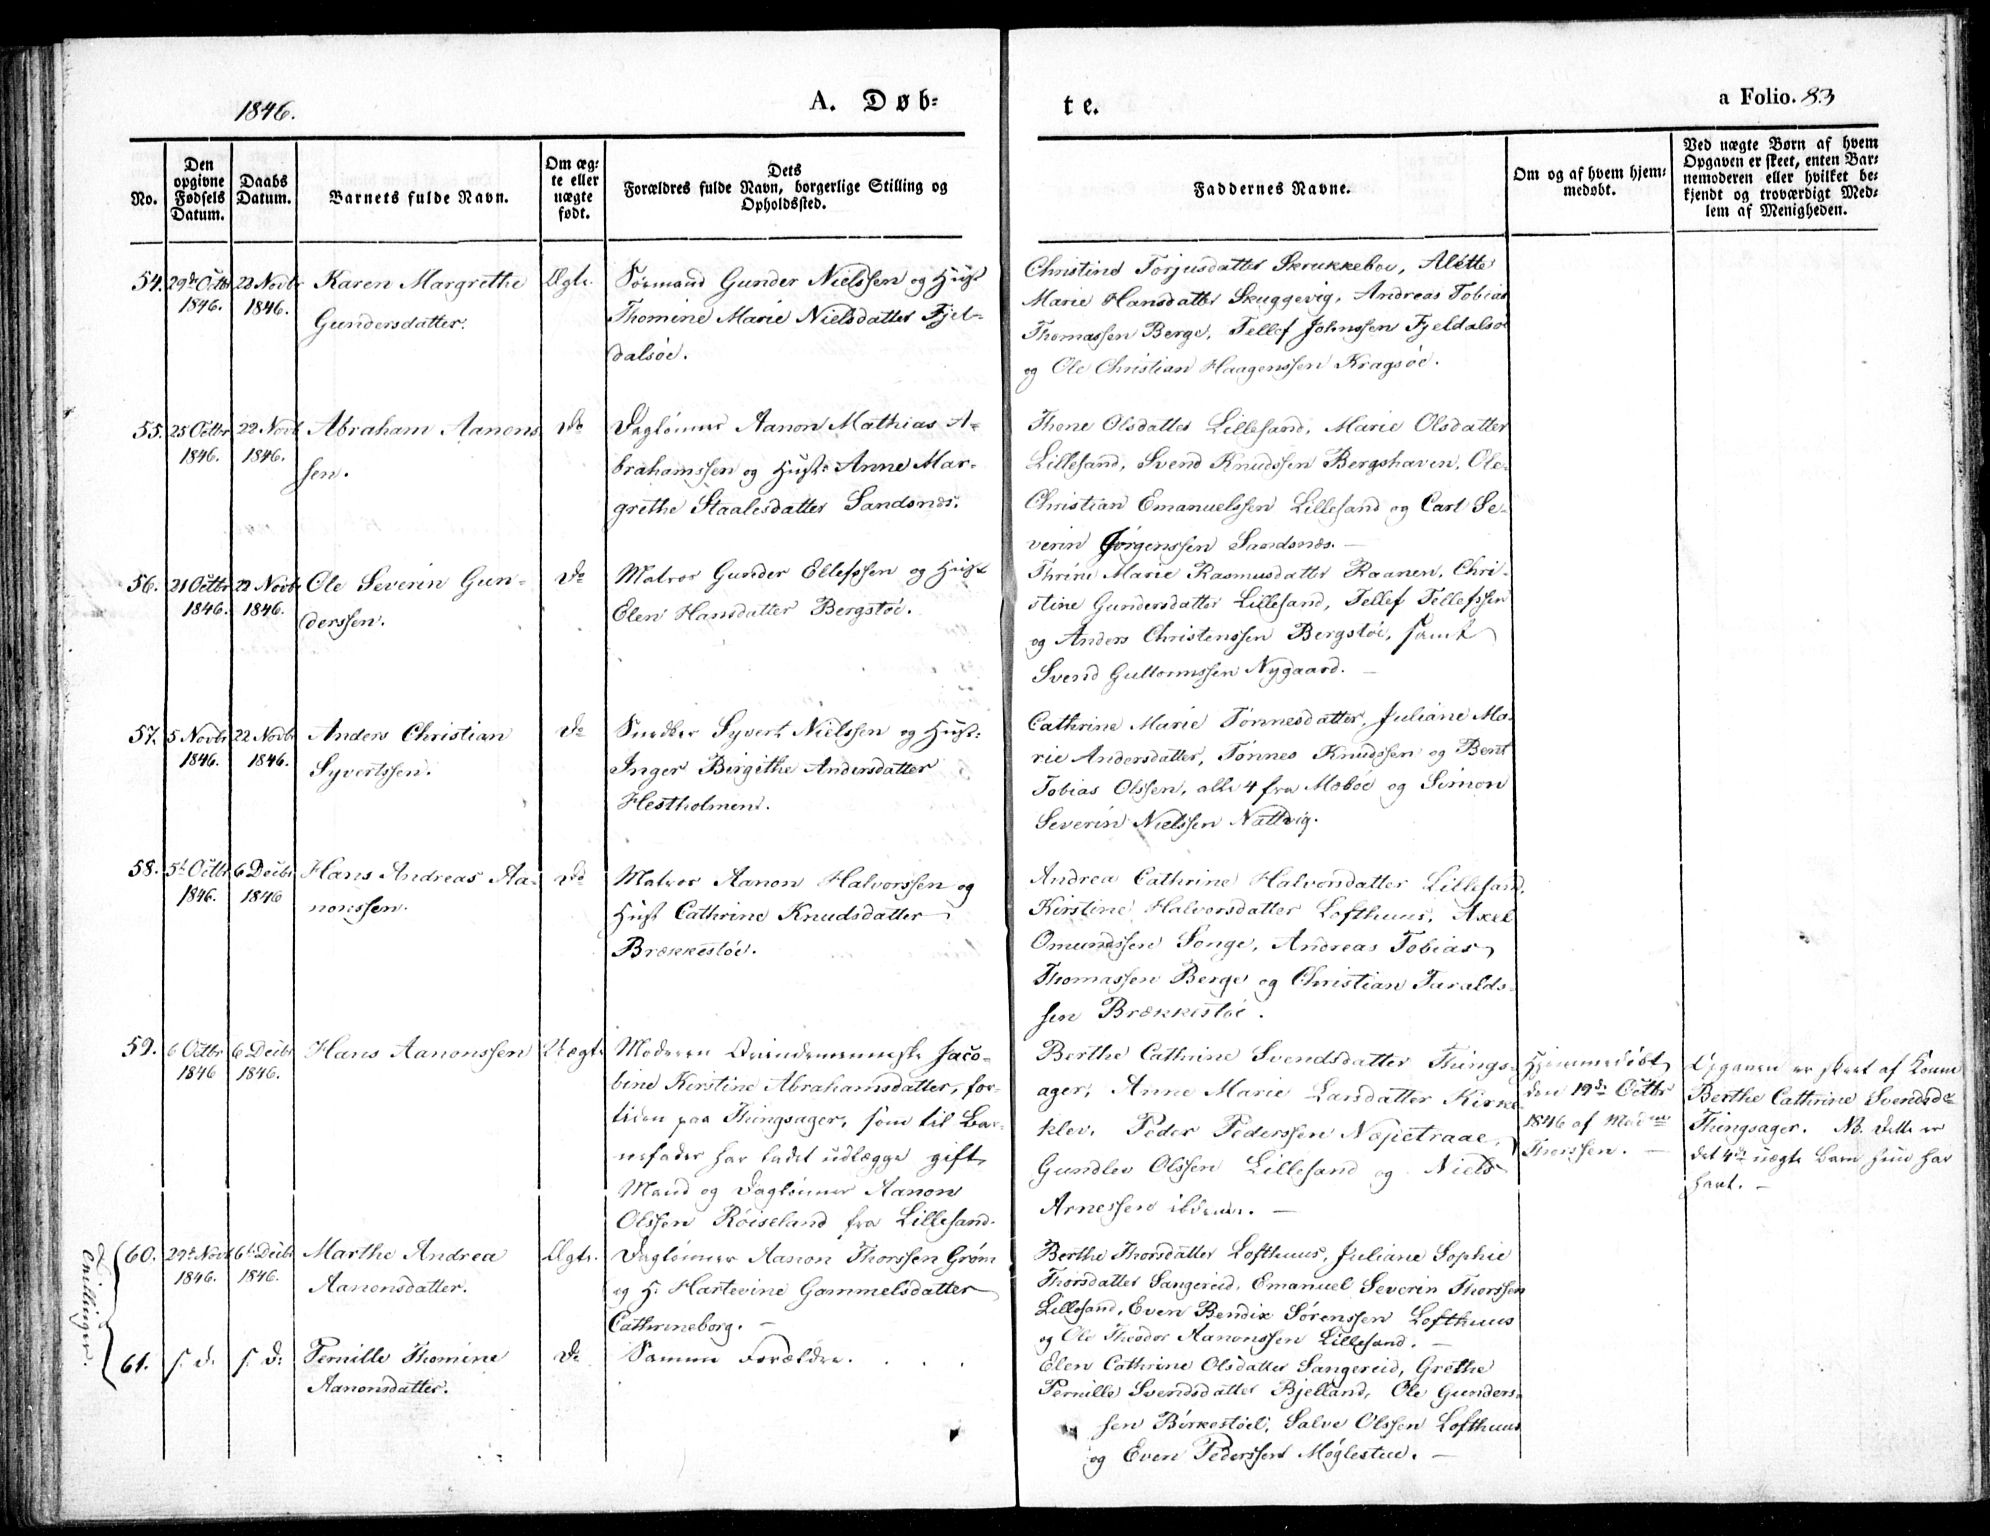 1846.
A. Døb-
te.
a Folio. 83
No.
Den
opgivne
Fødsels
Datum.
Daabs
Datum.
Barnets fulde Navn.
Om æg-
te eller
uægte
født.
Dets
Forældres fulde Navn, borgerlige Stilling og
Opholdssted.
Faddernes Navne.
Om og af hvem hjem-
medøbt.
Ved uægte Børn af hvem
Opgaven er skeet, enten Bar-
nemoderen eller hvilket be-
kjendt og troværdigt Med-
lem af Menigheden.
54.
29de Octbr
1846.
22 Novbr
1846.
Karen Margrethe
Gundersdatter.
Ægte.
Sømand Gunder Nielssen og Hust
Thomine Marie Nielsdatter Fjel-
dalsøe.
Christine Torjusdatter Skrukkeboe, Alette
Marie Hansdatter Skuggevig, Andreas Tobias
Thomassen Berge, Tellef Johnssen Fjeldalsø
og Ole Christian Haagenssen Kragsöe.
55.
25 Octbr
1846.
22 Novb
1846.
Abraham Aanons
sen.
Do
Daglönner Aanon Mathias A-
brahamssen og Hust: Anne Mar-
grethe Staalesdatter Sandsnæs.
Thone Olsdatter Lillesand, Marie Olsdatter
Lillesand, Svend Knudssen Bergshaven, Ole
Christian Emanuelssen Lillesand og Carl Se-
verin Jörgenssen Sandsnæs. —
56.
21 Octbr
1846.
22 Novb
1846.
Ole Severin Gun-
derssen.
Do
Matros Gunder Ellefssen og Hust
Elen Hansdatter Bergstöe.
Thrine Marie Rasmusdatter Raanen, Chri-
stine Gundersdatter Lillesand, Tellef Tellefssen
og Anders Christenssen Bergstöe, samt
Svend Guttormssen Nygaard. —
57.
5 Novbr
1846.
22 Novbr
1846.
Anders Christian
Syvertssen.
Do
Snedker Syvert Nielssen og Hust:
Inger Birgithe Andersdatter
Hestholmen.
Cathrine Marie Tönnesdatter, Juliane Ma-
rie Andersdatter, Tönnes Knudssen og Bent
Tobias Olssen, alle 4 fra Moböe og Simon
Severin Nielssen Nattvig.
58.
5t Octbr
1846.
6 Decbr
1846
Hans Andreas Aa-
nonssen.
Do
Matros Aanon Halvorssen og
Hust Cathrine Knudsdatter
Brækkestöe.
Andrea Cathrine Halvorsdatter Lillesand,
Kirstine Halvorsdatter Lofthuus, Axel
Omundssen Songe, Andreas Tobias
Thomassen Berge og Christian Taralds-
sen Brækkestöe.
59.
6 Octbr
1846
6 Decbr
1846.
Hans Aanonssen
Uægte
Moderen Qvindemenneske Jaco-
bine Kerstine Abrahamsdatter, for-
tiden paa Thingsager, som til Bar-
nefader har ladet udlægge gift
Mand og Daglönner Aanon
Olssen Röiseland fra Lillesand.
Berthe Cathrine Svendsdatter Things-
ager, Anne Marie Larsdatter Kirke-
klev, Peder Pederssen Nöpetraae,
Gundlev Olssen Lillesand og Niels
Arnessen ibidem. —
Hjemmedöbt
den 19de Octbr
1846 af
Thorssen. —
Opgaven er skeet af Konen
Berthe Cathrine Svendsdr
Thingsager. NB. Dette er
det 4de uægte Barn hun har
havt. —
Tvillinger.
60.
29t Novb
1846.
6t Decbr
1846.
Marthe Andrea
Aanonsdatter.
Ægte.
Daglönner Aanon Thorssen Gröm
og H: Hartevine Gammelsdatter
Cathrineborg. —
Berthe Thorsdatter Lofthuus, Juliane Sophie
Thorsdatter Sangereid, Emanuel Severin Thorssen
Lillesand, Even Bendix Sörenssen Lofthuus
og Ole Theodor Aanonssen Lillesand. —
61.
s. D.
s. D:
Pernille Thomine
Aanonsdatter.
Do
Samme Forældre. . . .
Elen Cathrine Olsdatter Sangereid, Grethe
Pernille Svendsdatter Bjelland, Ole Gunders-
sen Birkestöel, Salve Olssen Lofthuus
og Even Pederssen Möglestue. —